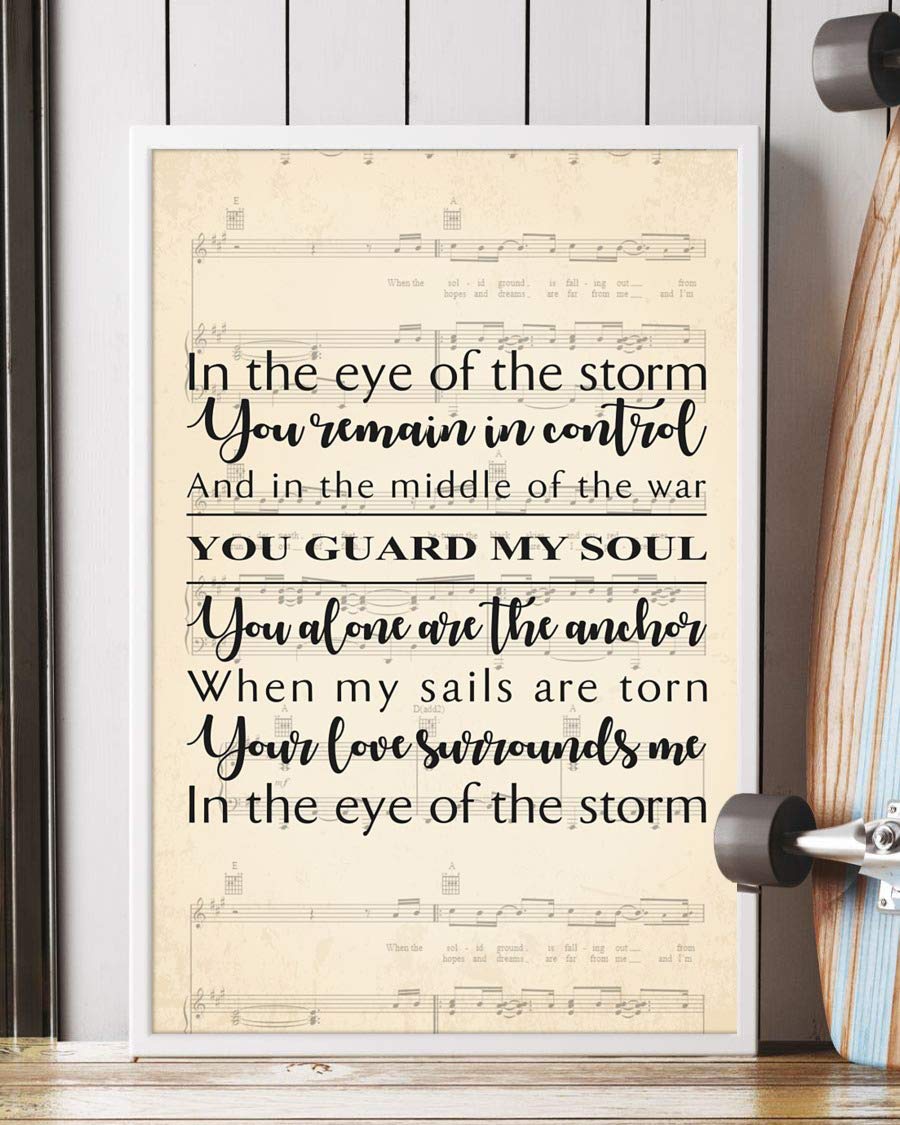 E A
When the sol - id ground is fall - ing out from
hopes and dreams are far from me and I'm
In the eye of the storm
You remain in control
And in the middle of the war
YOU GUARD MY SOUL
You alone are the anchor
When my sails are torn
A D(add2) A
Your love surrounds me
mf
In the eye of the storm
E A
When the sol - id ground is fall - ing out from
hopes and dreams are far from me and I'm